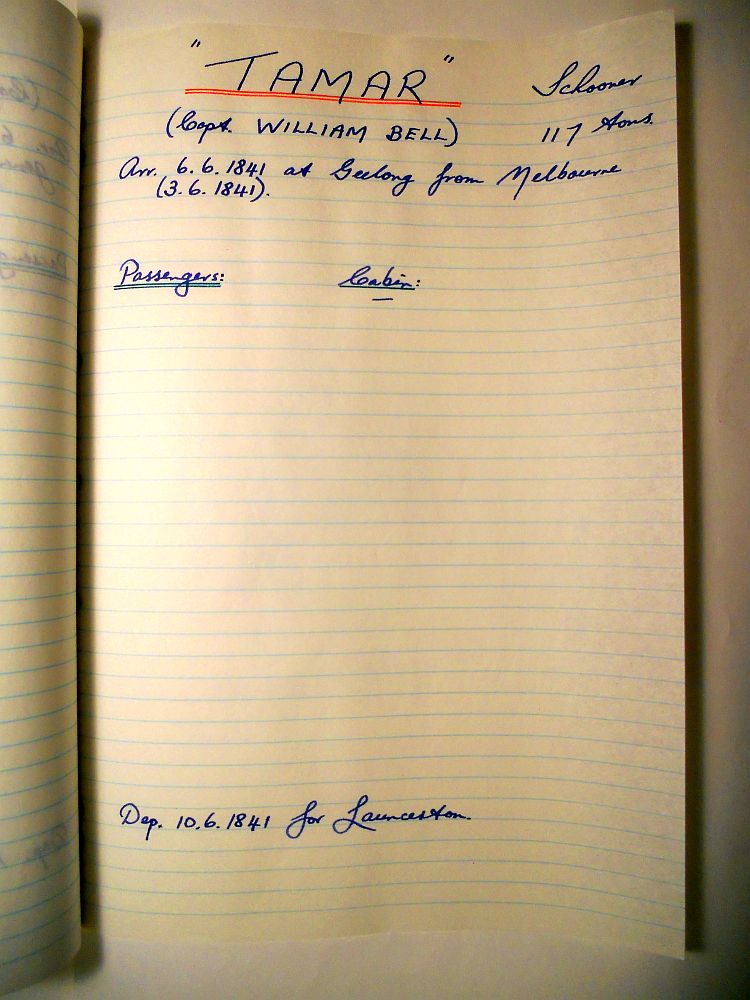 "TAMAR" Schooner
(Capt. WILLIAM BELL) 117 tons.
Arr. 6.6.1841 at Geelong from Melbourne
(3.6.1841).
Passengers: Cabin:
Dep. 10.6.1841 for Launceston.